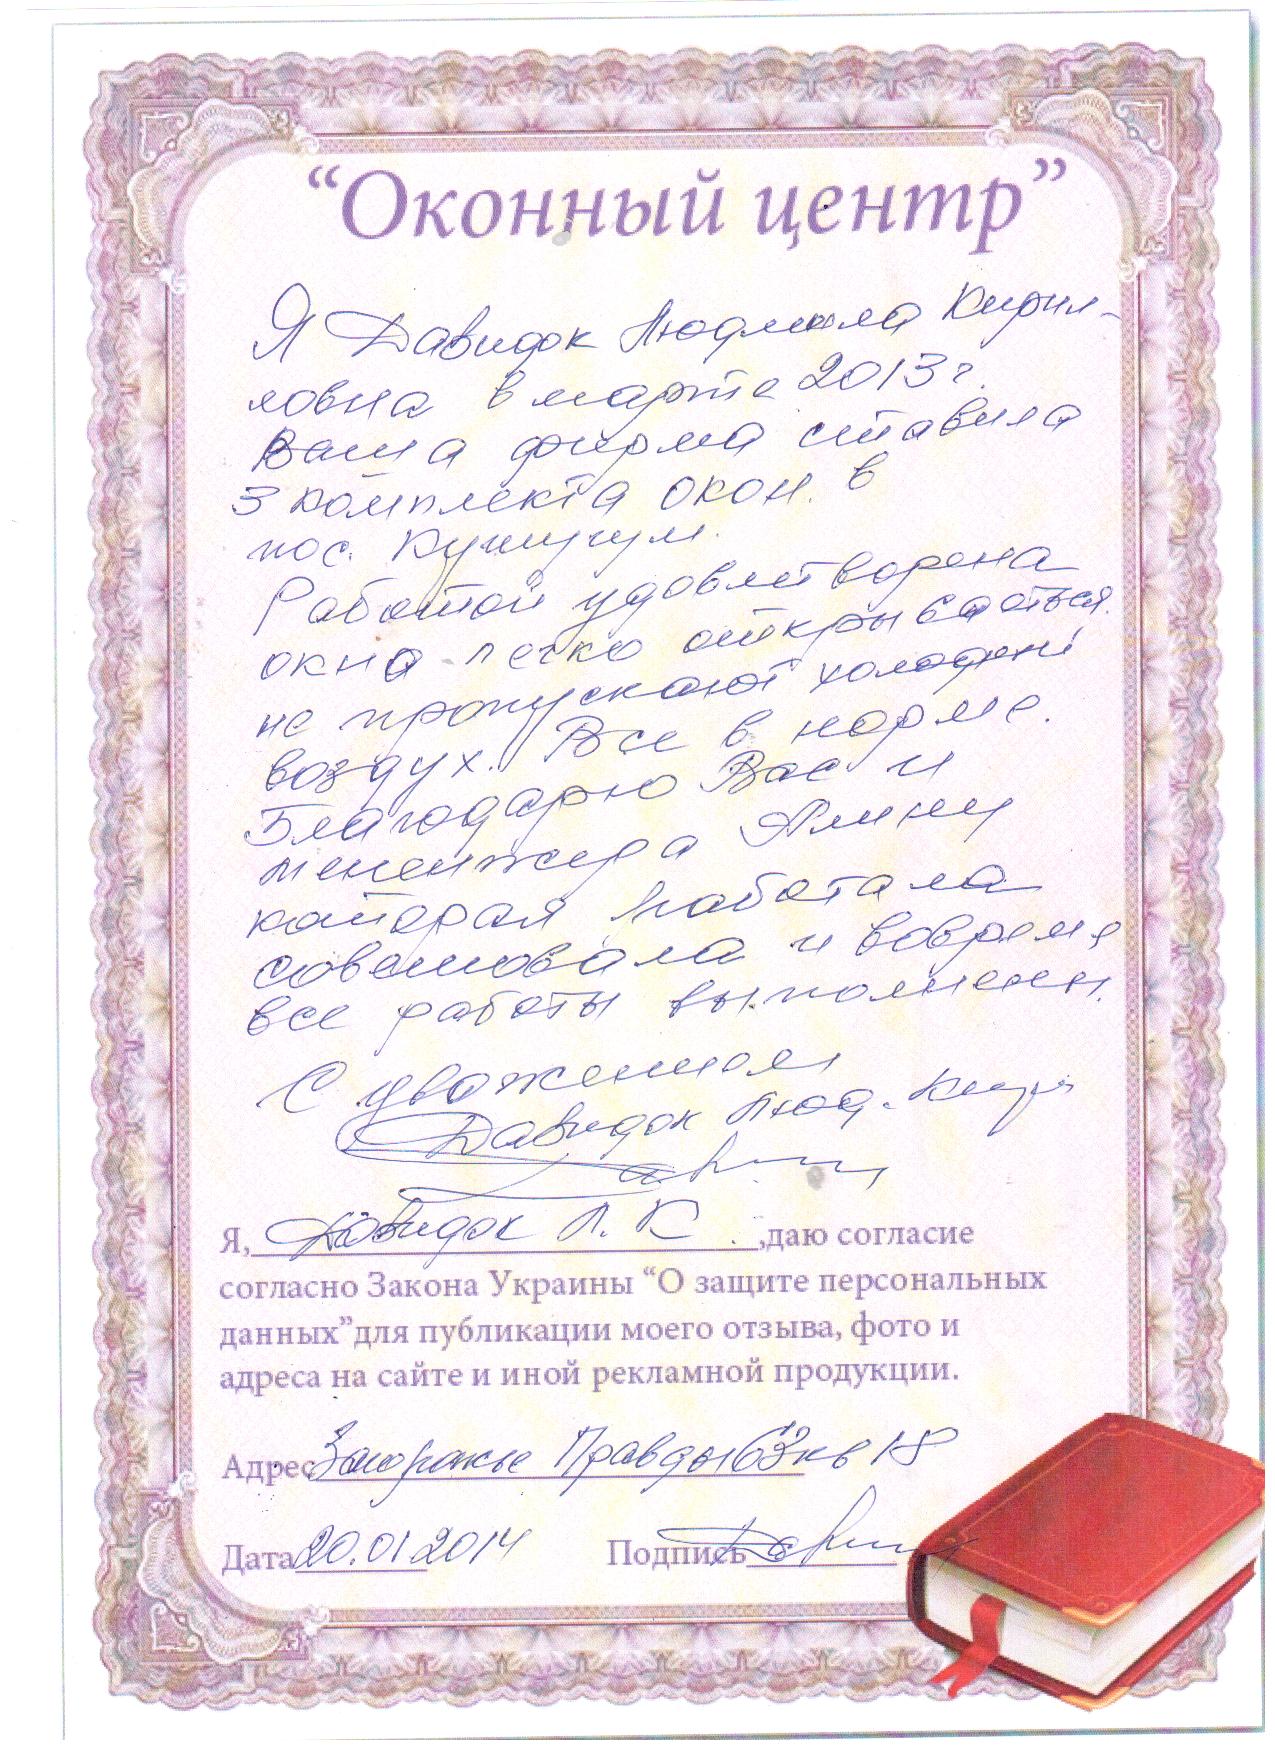 “Оконный центр”
Я Давидок Людмила Кирил-
ловна в марте 2013 г.
Ваша фирма ставила
3 комплекта окон. в
пос. Кушугум.
Работой удовлетворена
окна легко открываються.
не пропускают холодний
воздух. Все в норме.
Благодарю Вас и
мененжера Алину
которая работала
советовала и вовремя
все работы выполнени.
С уважением
Давидок Люд. Кир
Я, Давидок Л. К. ,даю согласие
согласно Закона Украины “О защите персональных
данных”для публикации моего отзыва, фото и
адреса на сайте и иной рекламной продукции.
Адрес Запорожье Правды 63 кв 18
Дата 20.01 2014 Подпись